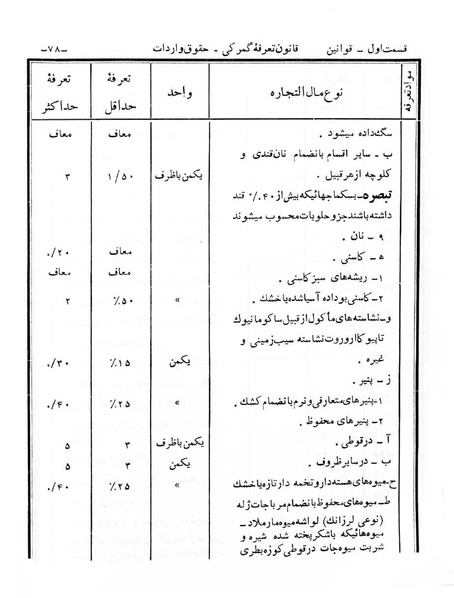 قسمت اول ــ قوانین قانون تعرفهٔ گمرکی ـ حقوق واردات ــ۷۸ــ
مواد تعرفه نوع مال التجاره واحد تعرفهٔ حداقل تعرفهٔ حداکثر
سگ داده میشود . معاف معاف
ب ـ سایر اقسام بانضمام نان قندی و
کلوچه از هر قبیل . یکمن باظرف ۱/۵۰ ۳
تبصره ـ بسکماجهائیکه بیش از ۴۰٪ قند
داشته باشند جزو حلویات محسوب میشوند
۹ ـ نان .
ه ـ کاسنی . معاف ۰/۲۰
۱ـ ریشه‌های سبز کاسنی . معاف معاف
۲ـ کاسنی بوداده آسیا شده یا خشك . » ۵۰٪ ۲
و ـ نشاسته‌های مأکول از قبیل ساکو مانیوك
تاپیوکا اروروت نشاسته سیب زمینی و
غیره . یکمن ۱۵٪ ۰/۳۰
ز ـ پنیر .
۱ـ پنیرهای متعارفی و نرم بانضمام کشك . » ۲۵٪ ۰/۴۰
۲ـ پنیرهای محفوظ .
آ ـ در قوطی . یکمن باظرف ۳ ۵
ب ـ در سایر ظروف . یکمن ۳ ۵
ح ـ میوه‌های هسته دار و تخمه دار تازه یا خشك » ۲۵٪ ۰/۴۰
ط ـ میوه‌های محفوظ بانضمام مرباجات ژله
(نوعی لرزانك) لواشه میوه مارملاد ـ
میوه هائیکه باشکر پخته شده شیره و
شربت میوه جات در قوطی کوزه بطری